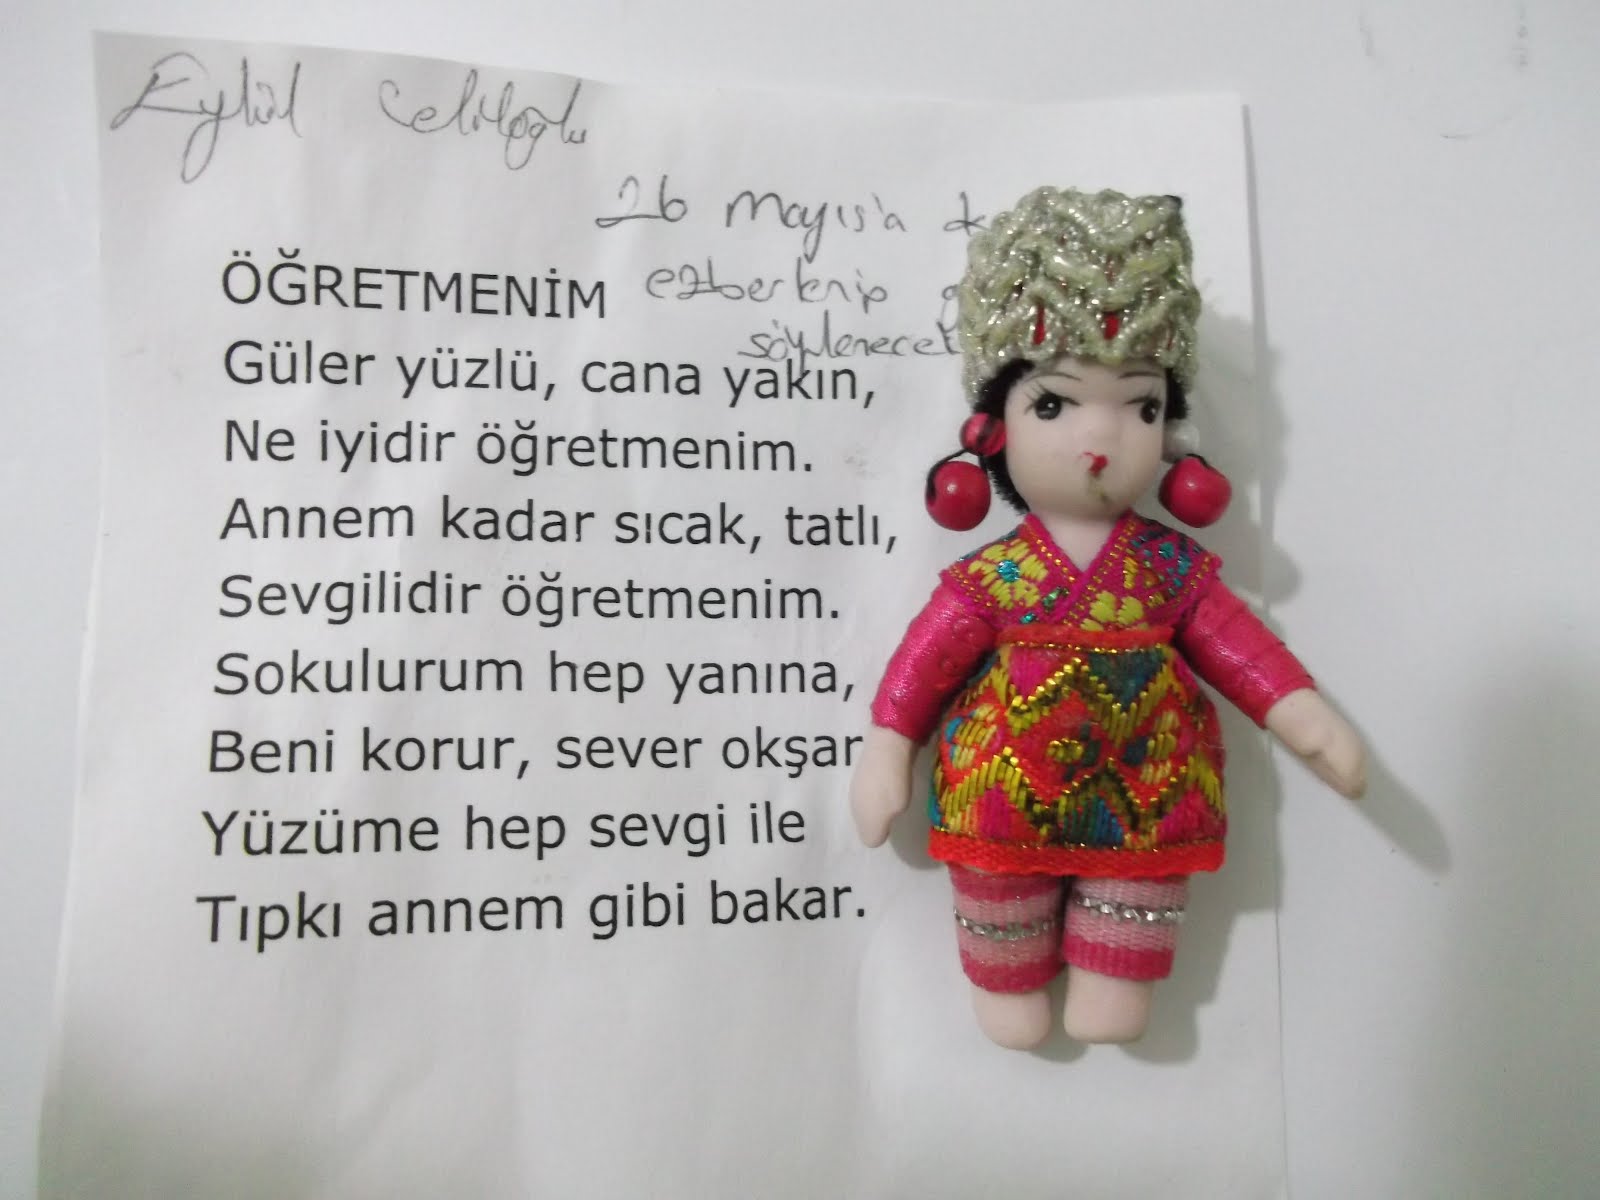 Eylül Celiloğlu
26 Mayıs'a
ÖĞRETMENİM ezberlenip
söylenecek
Güler yüzlü, cana yakın,
Ne iyidir öğretmenim.
Annem kadar sıcak, tatlı,
Sevgilidir öğretmenim.
Sokulurum hep yanına,
Beni korur, sever okşar
Yüzüme hep sevgi ile
Tıpkı annem gibi bakar.